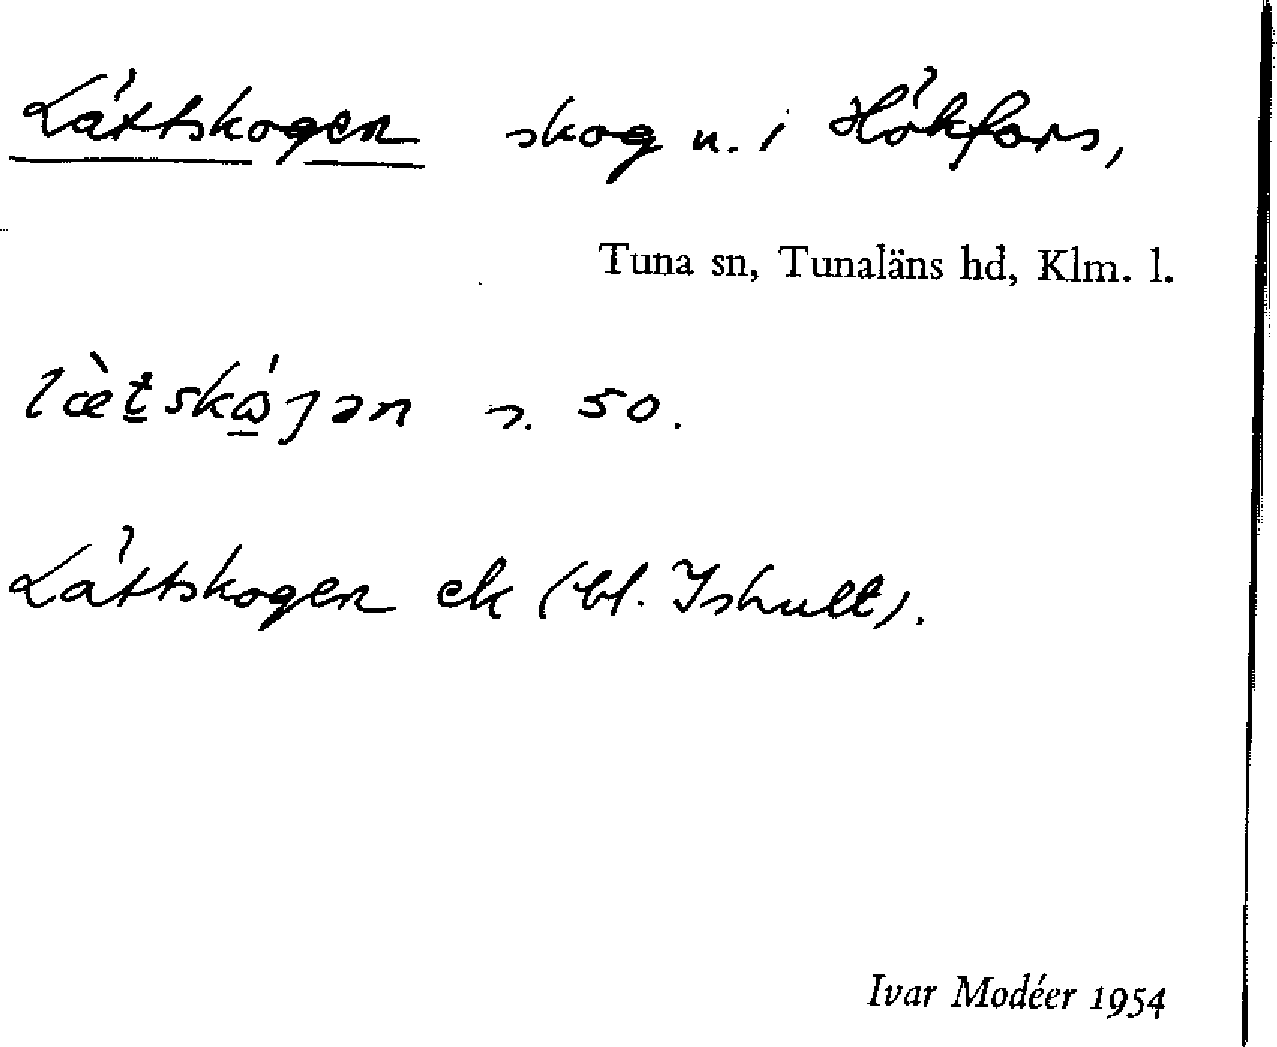 Lättskogen skog n. i Hökfors,
Tuna sn, Tunaläns hd, Klm. l.
læ̀t̠skɷ̠́ȷən s. 50.
Lättskogen ek (bl. Ishult).
Ivar Modéer 1954